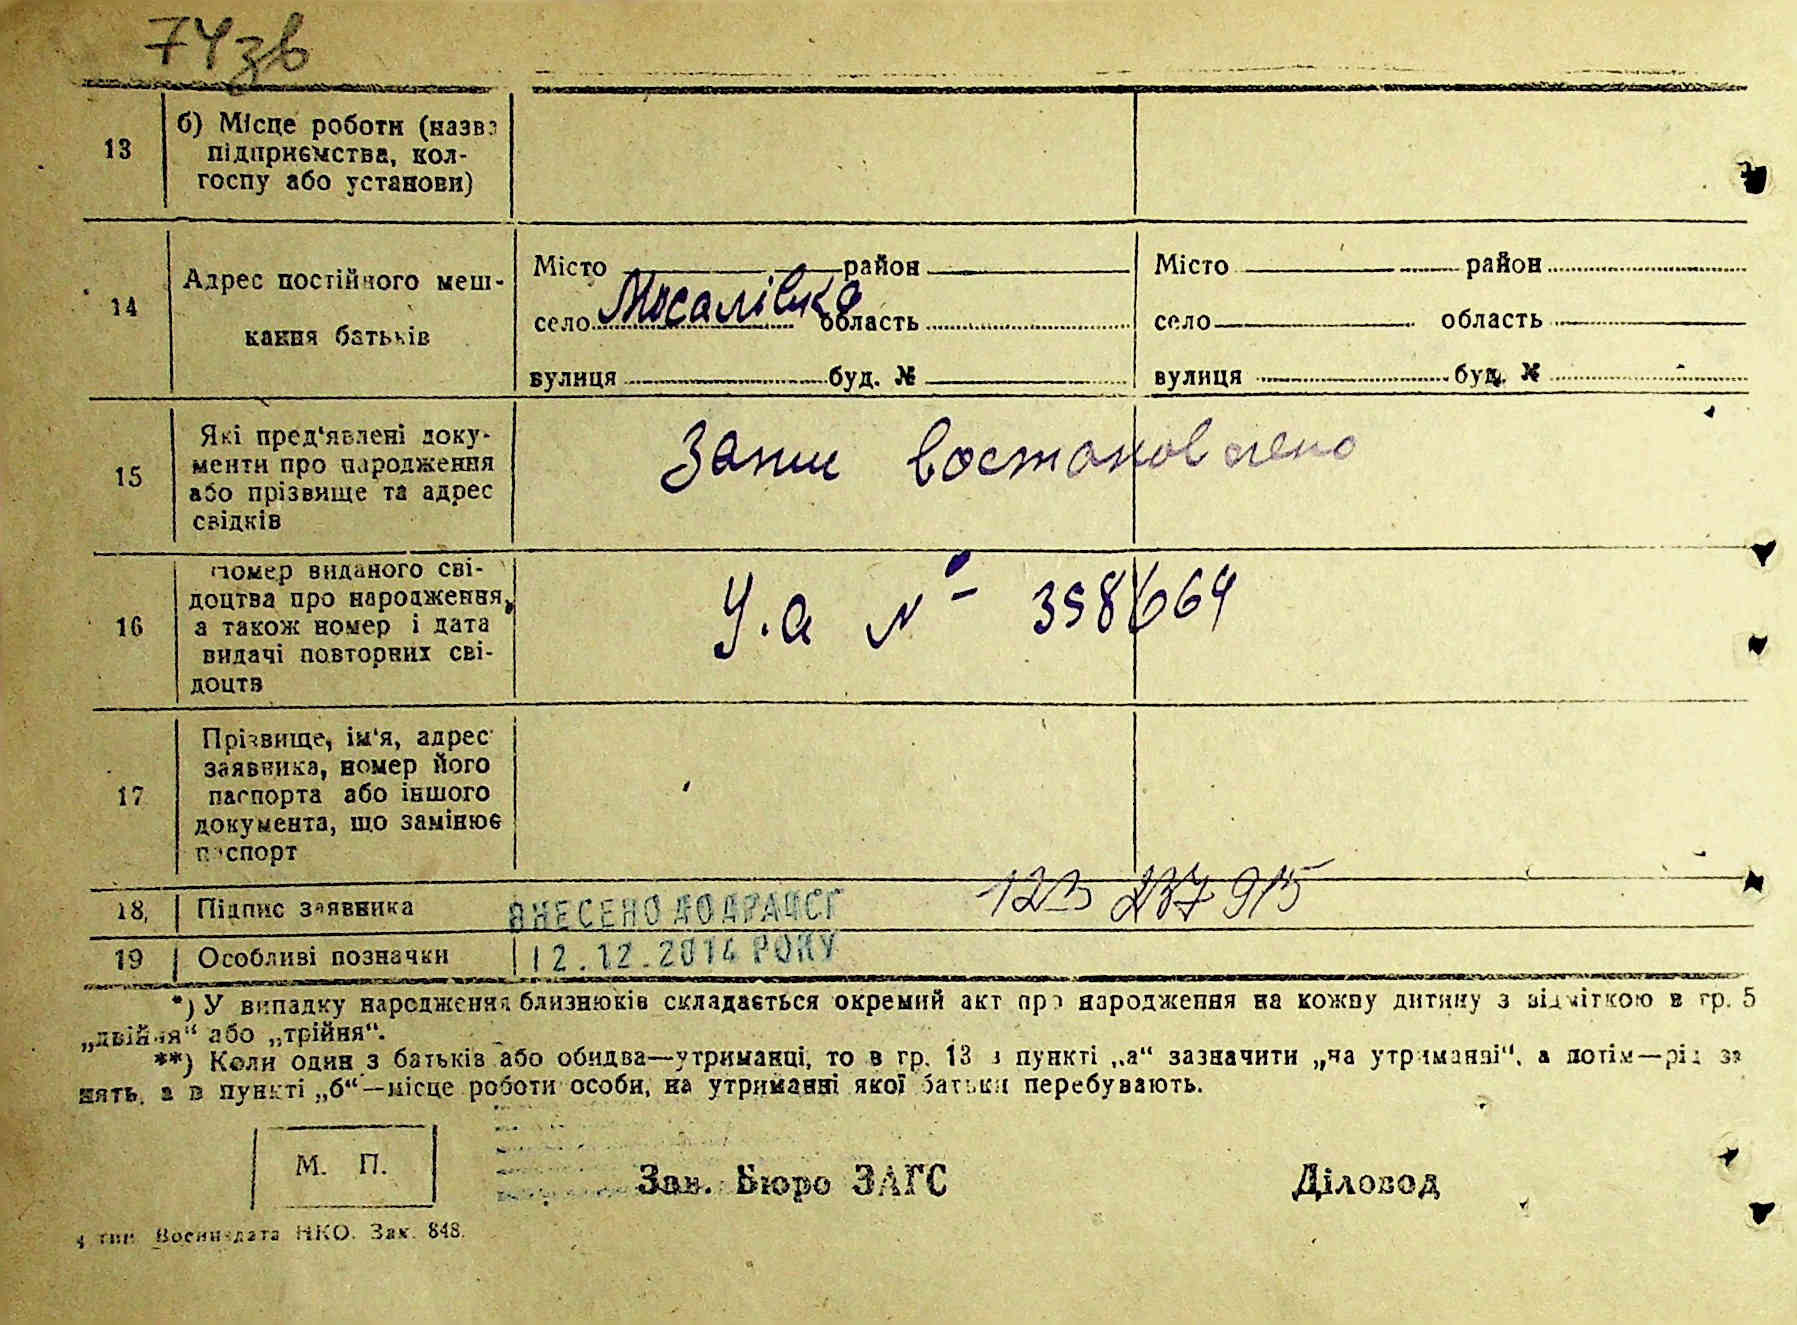 74зв
13 б) Місце роботи (назва
підприємства, кол-
госпу або установи)
14 Адрес постійного меш-
кання батьків
Місто район
село Мосалівка область
вулиця буд. №
Місто район
село область
вулиця буд. №
15 Які пред'явлені доку-
менти про народження
або прізвище та адрес
свідків
Запис востановлено
16 номер виданого сві-
доцтва про народження,
а також номер і дата
видачі повторних сві-
доцтв
У.а № 398664
17 Прізвище, ім'я, адрес
заявника, номер його
паспорта або іншого
документа, що замінює
паспорт
18, Підпис заявника ВНЕСЕНО ДО ДРАЦСГ 123 237 915
19 Особливі позначки 12.12.2014 РОКУ
*) У випадку народження близнюків складається окремий акт про народження на кожну дитину з відміткою в гр. 5
„двійня“ або „трійня“.
**) Коли один з батьків або обидва—утриманці, то в гр. 13 в пункті „а“ зазначити „на утриманні“, а потім—рід за
нять, а в пункті „б“—місце роботи особи, на утриманні якої батьки перебувають.
М. П.
Зав. Бюро ЗАГС Діловод
4 тип. Воениздата НКО. Зак. 848.